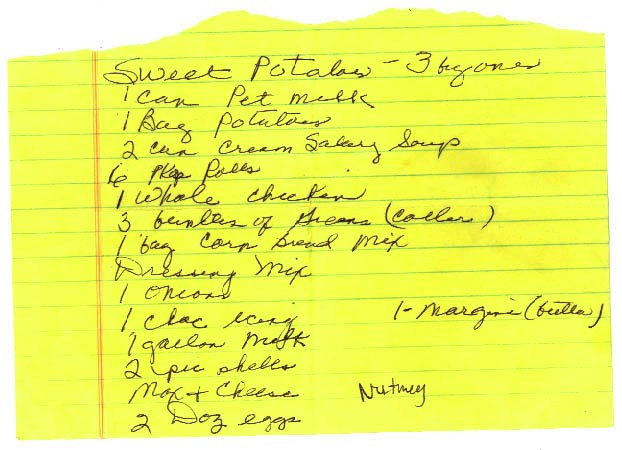 Sweet Potatoes - 3 big ones
1 can Pet milk
1 Bag potatoes
2 can cream Salery Soup
6 pkgs Rolls
1 whole chicken
3 bunltes of Greens (Coller)
1 bag Corn bread Mix
Dressing Mix
1 Onions
1 choc icing
1-Margine (butter)
1 gallon Milk
2 pie shells
Mac + Cheese
Nutmeg
2 Doz eggs